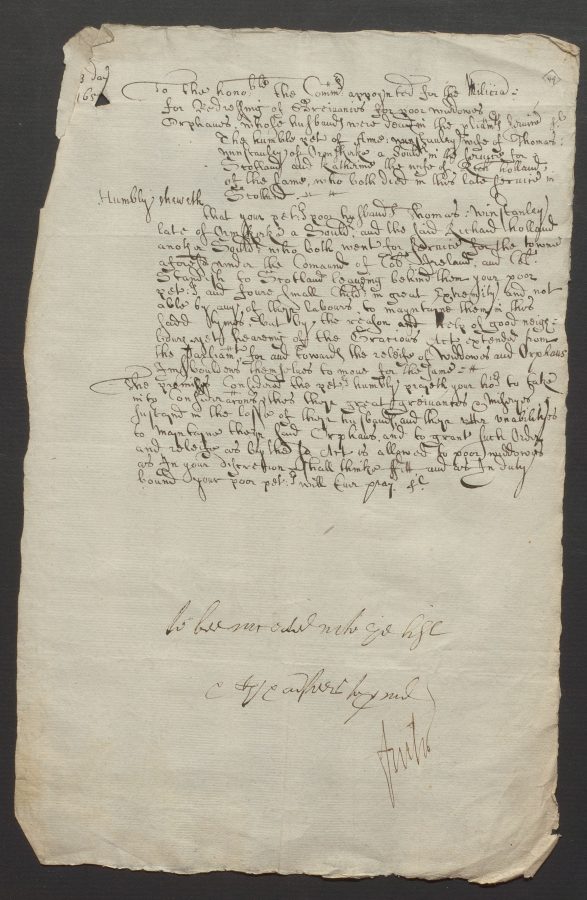 3 day
165
44
To The hono:ble the Comm:rs appointed for the Militia
for Redressing of Greivances for poor widowes
Orphanes, whose husbands were dead in the p:liam:ts service &c
The humble pet: of Anne: winstanley wife of Thomas:
winstanley, of Ormskirke a Sould: in the service for
Scotland and Katherine the wife of Rich: holland
of the same, who both died in this late service in
Scotland
Humbly sheweth
that your pet:rs poor husbands Thomas: winstanley
late of Ormskirke a Sould: and the said Richard holland
another Sould: who both went for service for the towne
aforesd under the Comand of Ireland, and
Standish to Scotland leaving behind them your poor
pet:rs and foure small Child: in great extremity and not
able by any of their labours to maintaine them in this
hard tymes but by the reason and help of good neigh-
bours yett hearing of the Gracious Act extended from
the Parliam:t for and towards the releife of widdowes and Orphanes
themselves to move for the same
The premises Considered the pet:rs humbly prayeth your hon:s to take
into Consideracon the their great greivances & miserys
sustained in the losse of their husbands, and their utter unabilities
to maintaine their said Orphans, and to grant such Order
and releife as by the sd Act is allowed to poor widdowes
as in your discretions shall thinke fitt and as in duty
bound your poor pet:rs will Ever pray &c
to bee